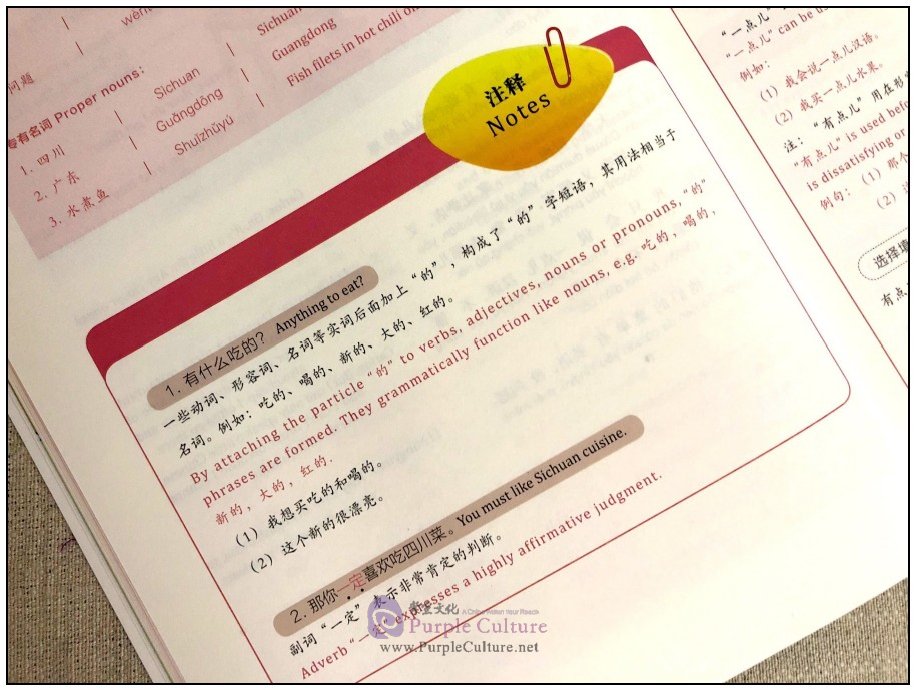 wèn
问题
专有名词 Proper nouns:
1. 四川 | Sìchuān | Sichuan
2. 广东 | Guǎngdōng | Guangdong
3. 水煮鱼 | Shuǐzhǔyú | Fish filets in hot chili oil
注释
Notes
1. 有什么吃的？ Anything to eat?
一些动词、形容词、名词等实词后面加上“的”，构成了“的”字短语，其用法相当于
名词。例如：吃的、喝的、新的、大的、红的。
By attaching the particle “的” to verbs, adjectives, nouns or pronouns, “的”
phrases are formed. They grammatically function like nouns, e.g. 吃的，喝的，
新的，大的，红的.
（1）我想买吃的和喝的。
（2）这个新的很漂亮。
2. 那你一定喜欢吃四川菜。You must like Sichuan cuisine.
副词“一定”表示非常肯定的判断。
Adverb “一定” expresses a highly affirmative judgment.
“一点儿”
“一点儿” can be
例如：
（1）我会说一点儿汉语。
（2）我买一点儿水果。
注：“有点儿”用在形
“有点儿” is used
is dissatisfying or
例句：（1）那个
（2）
选择
有点
紫圣文化
A China Within Your Reach
Purple Culture
www.PurpleCulture.net